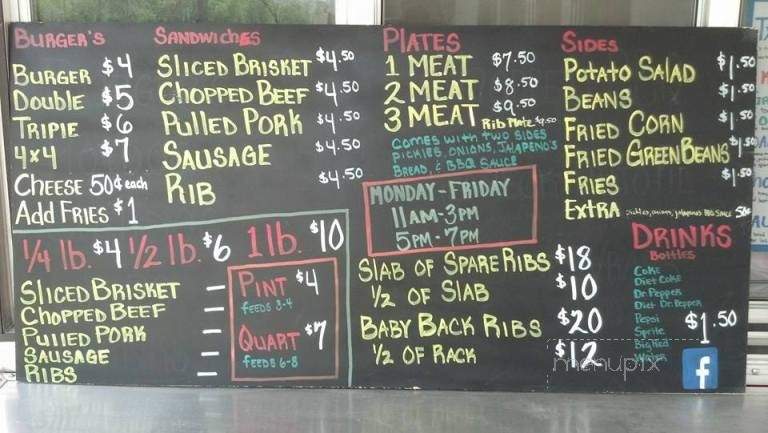 BURGER'S
BURGER $4
DOUBLE $5
TRIPLE $6
4x4 $7
CHEESE 50¢ each
Add FRIES $1
SANDWICHES
SLICED BRISKET $4.50
CHOPPED BEEF $4.50
PULLED PORK $4.50
SAUSAGE $4.50
RIB $4.50
PLATES
1 MEAT $7.50
2 MEAT $8.50
3 MEAT $9.50
Rib Plate $9.50
COMES WITH TWO SIDES
PICKLES, ONIONS, JALAPENO'S
BREAD, & BBQ SAUCE
MONDAY-FRIDAY
11AM-3PM
5PM-7PM
SIDES
POTATO SALAD $1.50
BEANS $1.50
FRIED CORN $1.50
FRIED GREEN BEANS $1.50
FRIES $1.50
EXTRA Pickles, onions, jalapenos BBQ SAUCE 50¢
1/4 lb. $4 1/2 lb. $6 1 lb. $10
SLICED BRISKET –
CHOPPED BEEF –
PULLED PORK –
SAUSAGE –
RIBS –
PINT $4
FEEDS 3-4
QUART $7
FEEDS 6-8
SLAB OF SPARE RIBS $18
1/2 OF SLAB $10
BABY BACK RIBS $20
1/2 OF RACK $12
DRINKS
Bottles
Coke
Diet Coke
Dr. Pepper
Diet Dr. Pepper
Pepsi
Sprite $1.50
Big Red
Water
menupix
f